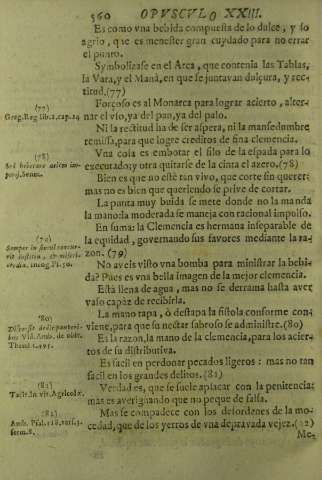 560 OPVSCVLO XXIII.
Es como vna bebida compuesta de lo dulce, y lo
agrio, que es menester gran cuydado para no errar
el punto.
Symbolizase en el Arca, que contenia las Tablas,
la Vara, y el Manà, en que se juntavan dulçura, y rec-
titud.(77)
(77)
Greg. Reg lib.2.cap.14
Forçoso es al Monarca para lograr acierto, alter-
nar el vso, ya del pan, ya del palo.
Ni la rectitud ha de ser aspera, ni la mansedumbre
remissa, para que logre creditos de fina clemencia.
(78)
Vna cosa es embotar el filo de la espada para lo
executado; y otra quitarse de la cinta el azero.(78)
Bien es que no estè tan vivo, que corte sin querer:
mas no es bien que queriendo se prive de cortar.
La punta muy buida se mete donde no la manda
la mano: la moderada se maneja con racional impulso.
En suma: la Clemencia es hermana inseparable de
la equidad, governando sus favores mediante la ra-
zon. (79)
(79)
No aveis visto vna bomba para ministrar la bebi-
da? Pues es vna bella imagen de la mejor clemencia.
Està llena de agua, mas no se derrama hasta aver
vaso capàz de recibirla.
(80)
La mano tapa, ò destapa la fistola conforme con-
viene, para que su nectar sabroso se administre.(80)
Es la razon, la mano de la clemencia, para los acier-
tos de su distributiva.
Es facil en perdonar pecados ligeros: mas no tan
facil en los grandes delitos.(81)
(81)
Tacit. in vit. Agricolæ.
Verdad es, que se suele aplacar con la penitencia:
mas es averignando que no peque de falsa.
(82)
Amb. Psal. 118.
serm.8.
Mas se compadece con los desordenes de la mo-
cedad, que de los yerros de vna depravada vejez. (82)